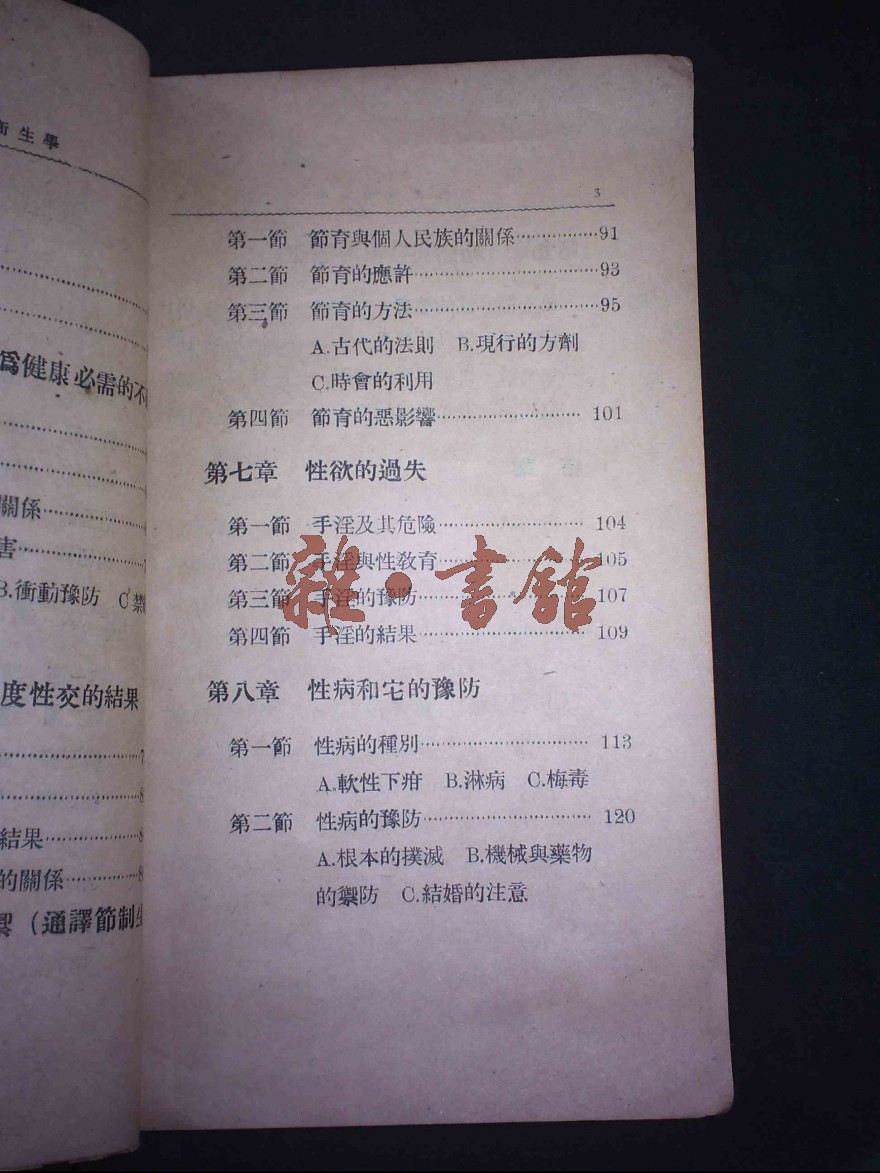 生學
爲健康必需的不
關係
害
B.衝動豫防 C.禁
度性交的結果
結果
的關係
(通譯節制生
3
第一節 節育與個人民族的關係……………91
第二節 節育的應許……………93
第三節 節育的方法……………95
A.古代的法則 B.現行的方劑
C.時會的利用
第四節 節育的惡影響……………101
第七章 性欲的過失
第一節 手淫及其危險……………104
第二節 手淫與性敎育……………105
第三節 手淫的豫防……………107
第四節 手淫的結果……………109
雜·書館
第八章 性病和宅的豫防
第一節 性病的種別……………113
A.軟性下疳 B.淋病 C.梅毒
第二節 性病的豫防……………120
A.根本的撲滅 B.機械與藥物
的禦防 C.結婚的注意